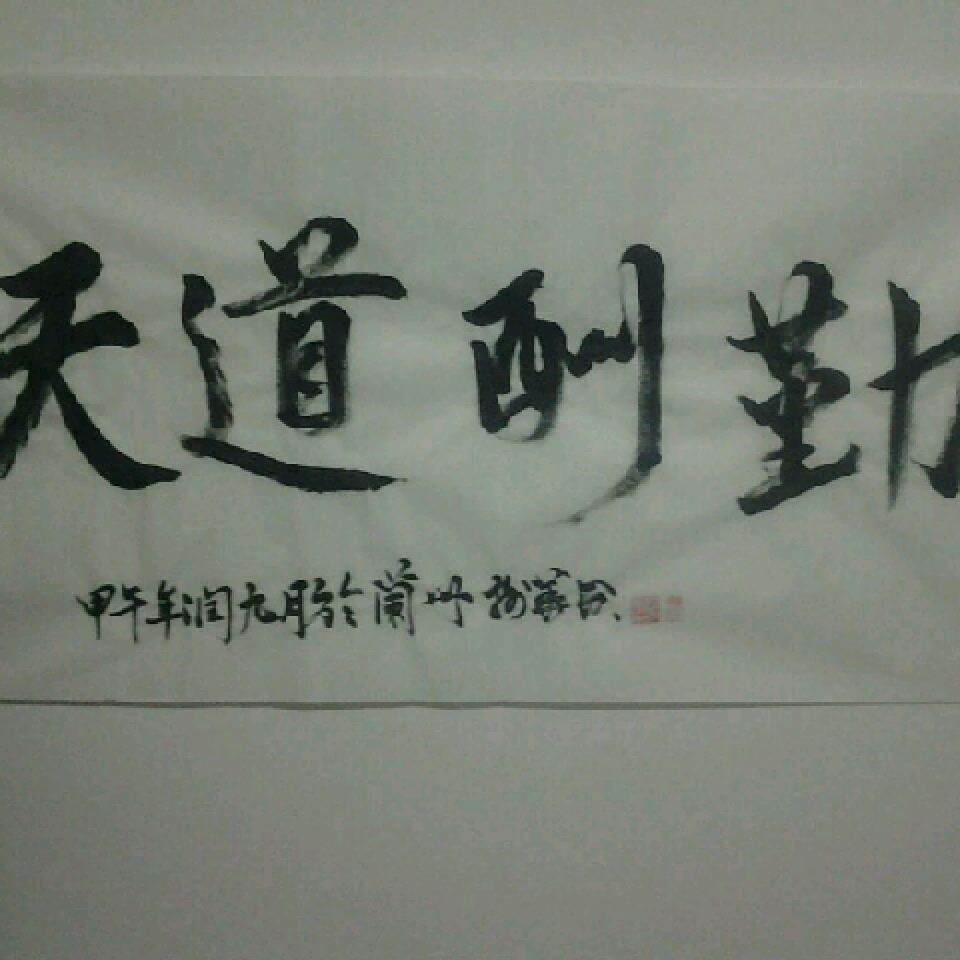 天道酬勤
甲午年润九月于兰州